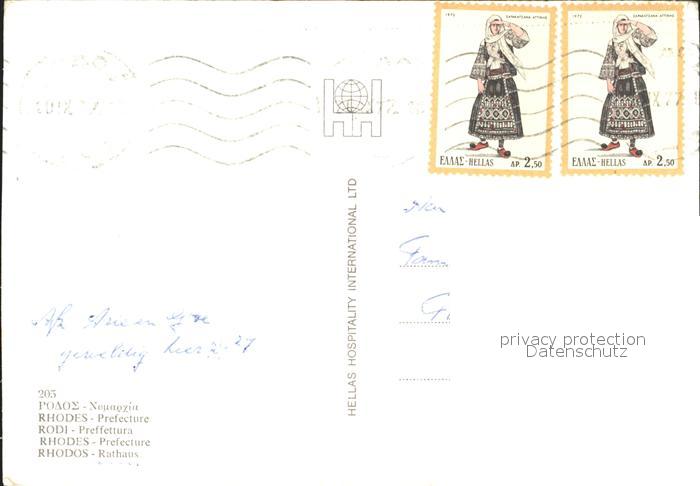 1972 ΣΑΡΑΚΑΤΣΑΝΑ ΑΤΤΙΚΗΣ
ΕΛΛΑΣ-HELLAS ΔΡ. 2,50
1972 ΣΑΡΑΚΑΤΣΑΝΑ ΑΤΤΙΚΗΣ
ΕΛΛΑΣ-HELLAS ΔΡ. 2,50
HELLAS HOSPITALITY INTERNATIONAL LTD
Fam
geweldig hier
privacy protection
Datenschutz
205
ΡΟΔΟΣ - Νομαρχία
RHODES - Prefecture
RODI - Preffettura
RHODES - Prefecture
RHODOS - Rathaus